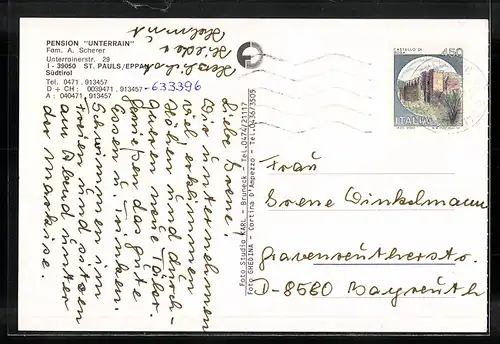 PENSION "UNTERRAIN"
Fam. A. Scherer
Unterrainerstr. 29
I - 39050 ST. PAULS/EPPAN
Südtirol
Tel. 0471 . 913457
D + CH: 0039471 . 913457
A: 040471 . 913457
-633396
Liebe Irene!
Wir unternehmen
viel, erklimmen
Höhen und durch-
queren neue Täler.
Genießen das gute
Essen u. Trinken.
Schwimmen im
Freien und sitzen
am Abend unter
der Markise.
Herzlichst
Helmut
Foto Studio KARL - Bruneck - Tel. 0474/21117
Foto GHEDINA - Cortina d'Ampezzo - Tel. 0436/3509
CASTELLO DI
450
ITALIA
Frau
Irene Winkelmann
Gravenreutherstr.
D-8580 Bayreuth